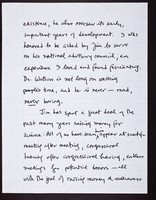 existence, he also oversaw its early,
important years of development. I was
honored to be asked by Jim to serve
on his national advisory council, an
experience I loved and found fascinating.
Dr. Watson is not long on wasting
people's time, and he is never — read,
never boring.
Jim has spent a great deal of the
past many years raising money for
science. All of us have seen him appear at scientific
meeting after meeting, congressional
hearing after congressional hearing, endless
meetings for potential donors — all
with the goal of raising money & enthusiasm